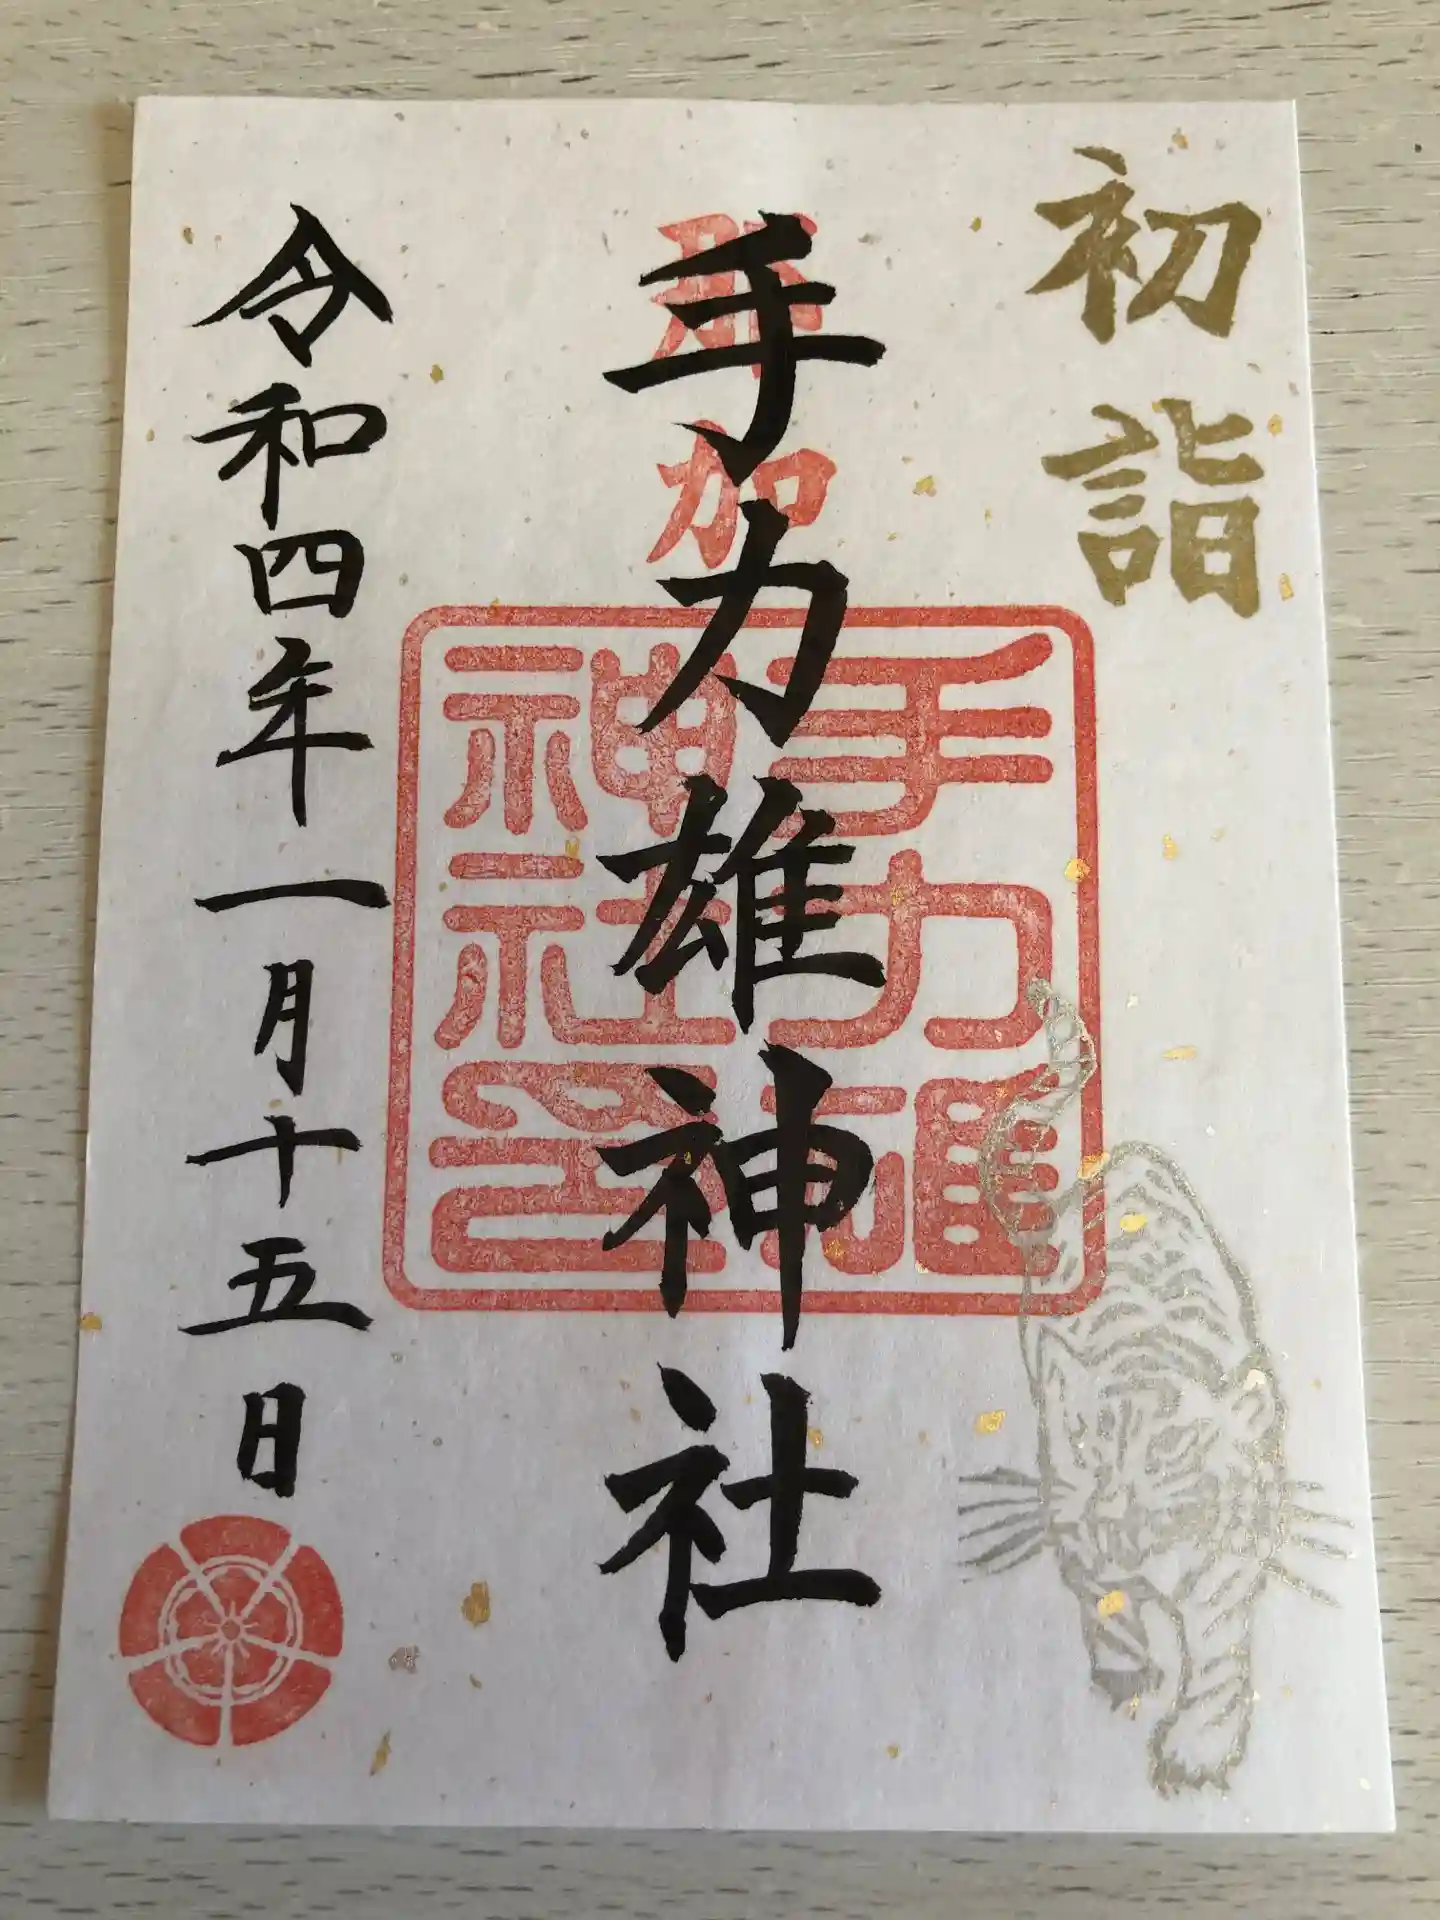 初詣
那加
手力雄神社
手力雄
神社印
令和四年一月十五日